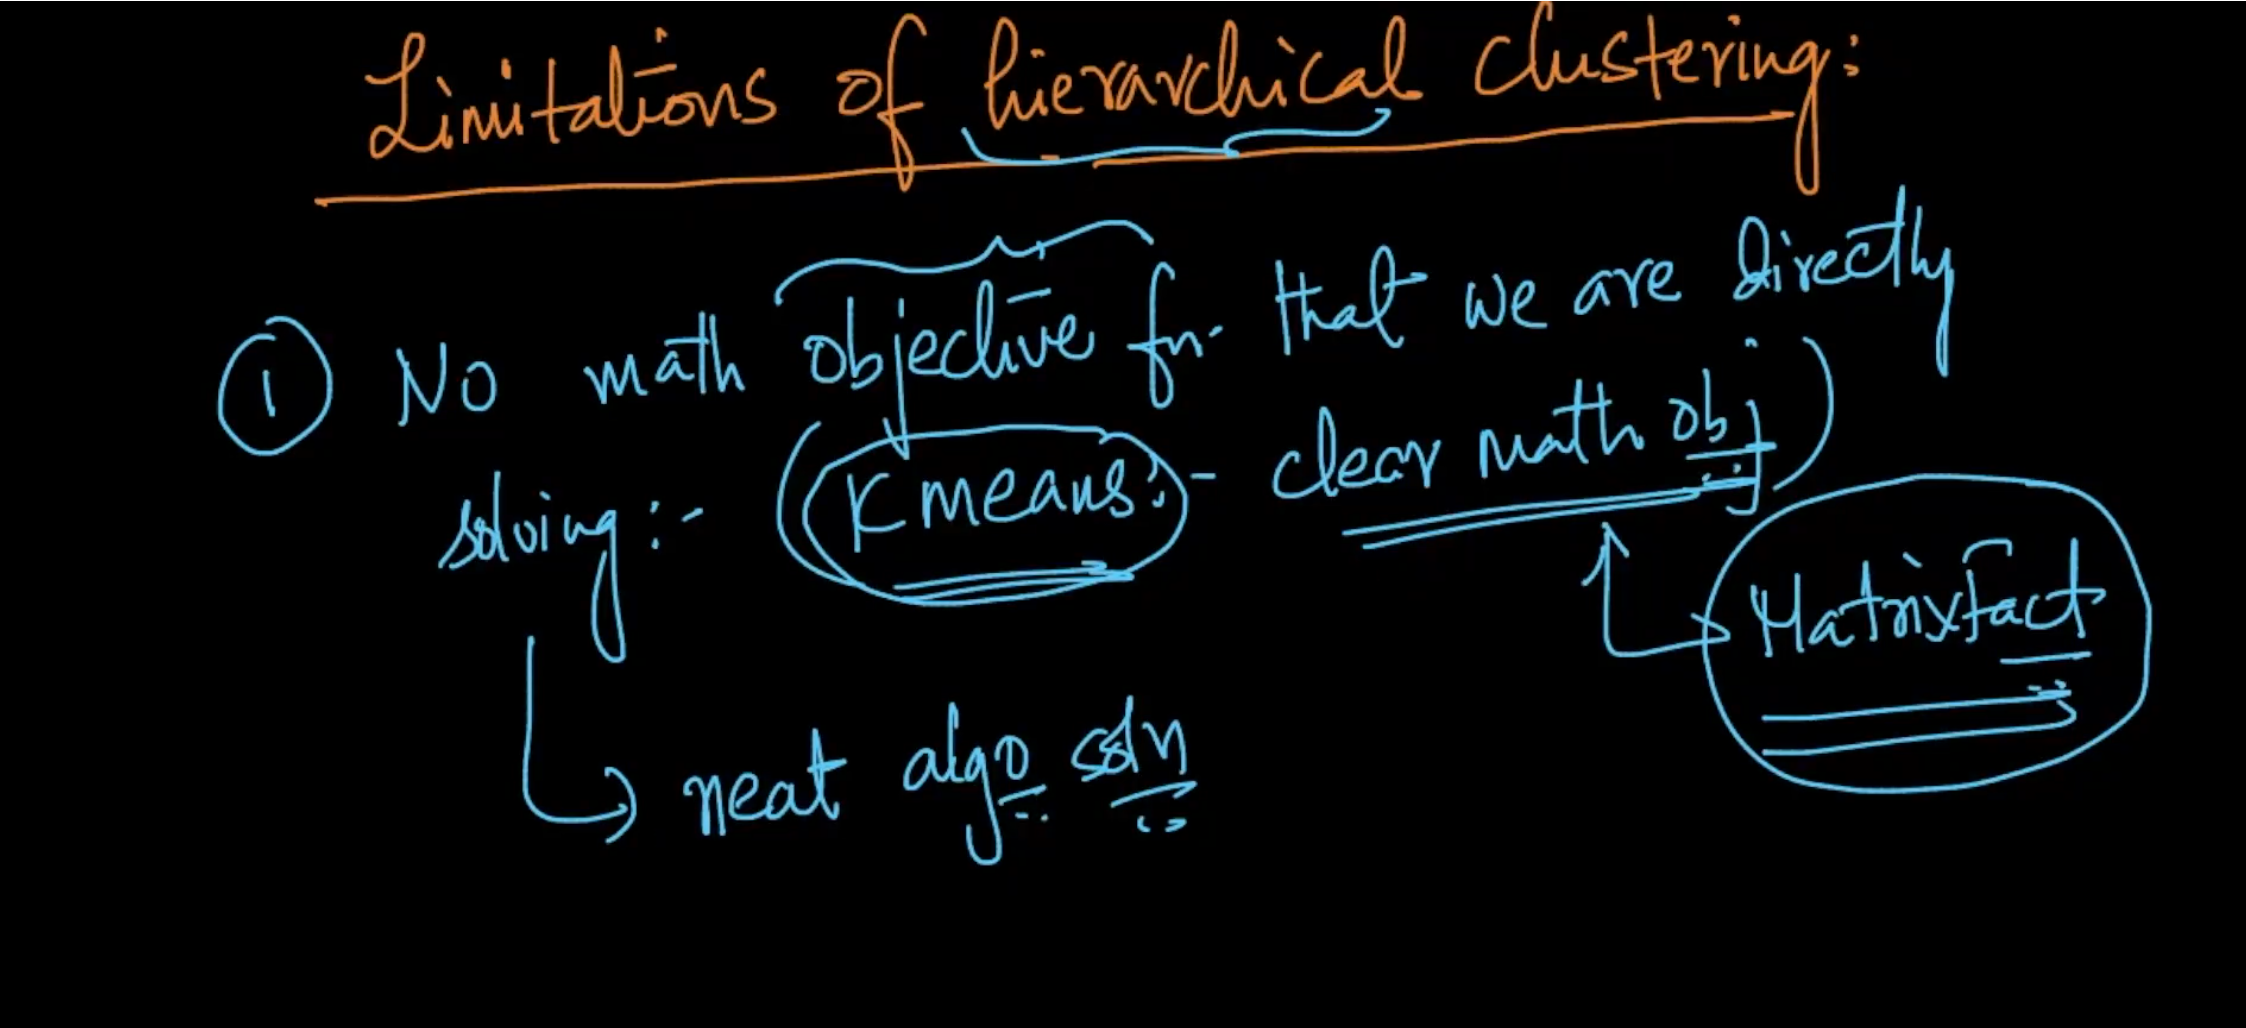 Limitations of hierarchical clustering:
① No math objective fn. that we are directly
solving:- (K means:- clear math obj)
Matrix Fact
neat algo soln